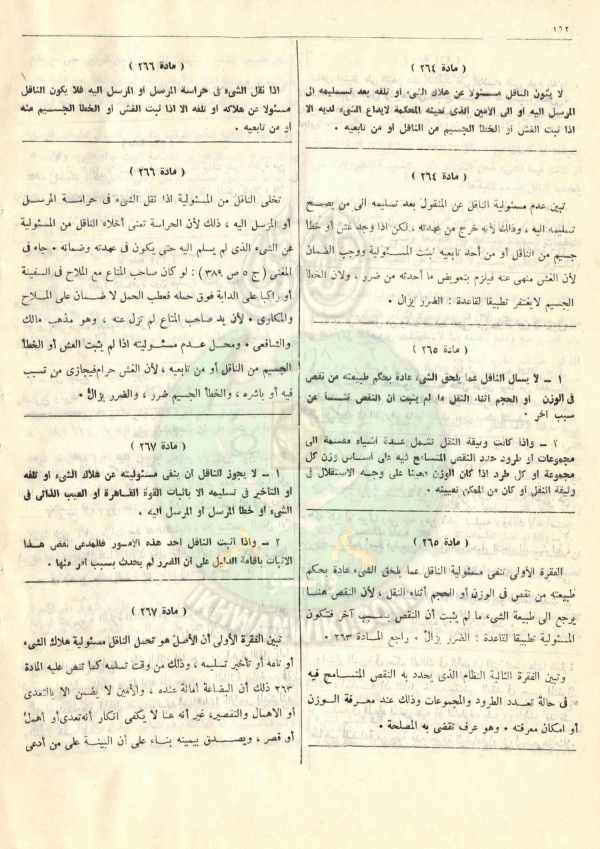 ١٦٢
( مادة ٢٦٤ )
لا يكون الناقل مسئولا عن هلاك الشىء أو تلفه بعد تسليمه الى
المرسل اليه أو الى الامين الذى تعينه المحكمة لايداع الشىء لديه الا
اذا ثبت الغش أو الخطأ الجسيم من الناقل أو من تابعيه .
( مادة ٢٦٤ )
تبين عدم مسئولية الناقل عن المنقول بعد تسليمه الى من يصح
تسليمه اليه ، وذلك لأنه خرج من عهدته ، لكن اذا وجد غش أو خطأ
جسيم من الناقل أو من أحد تابعيه ثبتت المسئولية ووجب الضمان
لأن الغش منهى عنه فيلزم بتعويض ما أحدثه من ضرر ، ولان الخطأ
الجسيم لايغتفر تطبيقا لقاعدة : الضرر يزال .
( مادة ٢٦٥ )
١ – لا يسأل الناقل عما يلحق الشىء عادة بحكم طبيعته من نقص
فى الوزن أو الحجم أثناء النقل ما لم يثبت ان النقص نشأ عن
سبب آخر .
٢ – واذا كانت وثيقة النقل تشمل عدة أشياء مقسمة الى
مجموعات أو طرود حدد النقص المتسامح فيه على أساس وزن كل
مجموعة أو كل طرد اذا كان الوزن معينا على وجه الاستقلال فى
وثيقة النقل أو كان من الممكن تعيينه .
( مادة ٢٦٥ )
الفقرة الأولى تنفى مسئولية الناقل عما يلحق الشىء عادة بحكم
طبيعته من نقص فى الوزن أو الحجم أثناء النقل ، لأن النقص هنا
يرجع الى طبيعة الشىء ما لم يثبت أن النقص بسبب آخر فتكون
المسئولية تطبيقا لقاعدة : الضرر يزال . راجع المادة ٢٦٣ .
وتبين الفقرة الثانية النظام الذى يحدد به النقص المتسامح فيه
فى حالة تعدد الطرود والمجموعات وذلك عند معرفة الوزن
أو امكان معرفته . وهو عرف تقضى به المصلحة .
( مادة ٢٦٦ )
اذا نقل الشىء فى حراسة المرسل أو المرسل اليه فلا يكون الناقل
مسئولا عن هلاكه أو تلفه الا اذا ثبت الغش أو الخطأ الجسيم منه
أو من تابعيه .
( مادة ٢٦٦ )
تخلى الناقل من المسئولية اذا نقل الشىء فى حراسة المرسل
أو المرسل اليه ، ذلك لأن الحراسة تعنى أخلاء الناقل من المسئولية
عن الشىء الذى لم يسلم اليه حتى يكون فى عهدته وضمانه . جاء فى
المغنى ( ج ٥ ص ٣٨٩ ) : لو كان صاحب المتاع مع الملاح فى السفينة
أو راكبا على الدابة فوق حمله فعطب الحمل لا ضمان على الملاح
والمكارى . لأن يد صاحب المتاع لم تزل عنه ، وهو مذهب مالك
والشافعى . ومحل عدم مسئوليته اذا لم يثبت الغش أو الخطأ
الجسيم من الناقل أو من تابعيه ، لأن الغش حرام فيجازى من تسبب
فيه أو باشره ، والخطأ الجسيم ضرر ، والضرر يزال .
( مادة ٢٦٧ )
١ – لا يجوز للناقل أن ينفى مسئوليته عن هلاك الشىء أو تلفه
أو التأخير فى تسليمه الا باثبات القوة القاهرة أو العيب الذاتى فى
الشىء أو خطأ المرسل أو المرسل اليه .
٢ – واذا أثبت الناقل احد هذه الامور فللمدعى نقض هذا
الاثبات باقامة الدليل على أن الضرر لم يحدث بسبب أمر منها .
( مادة ٢٦٧ )
تبين الفقرة الأولى أن الأصل هو تحمل الناقل مسئولية هلاك الشىء
أو تلفه أو تأخير تسليمه ، وذلك من وقت تسلمه كما تنص عليه المادة
٢٦٣ ذلك أن البضاعة أمانة عنده ، والأمين لا يضمن الا بالتعدى
أو الاهمال والتقصير، غير أنه هنا لا يكفى انكار أنه تعدى أو أهمل
أو قصر ، ويصدق بيمينه بناء على أن البينة على من أدعى